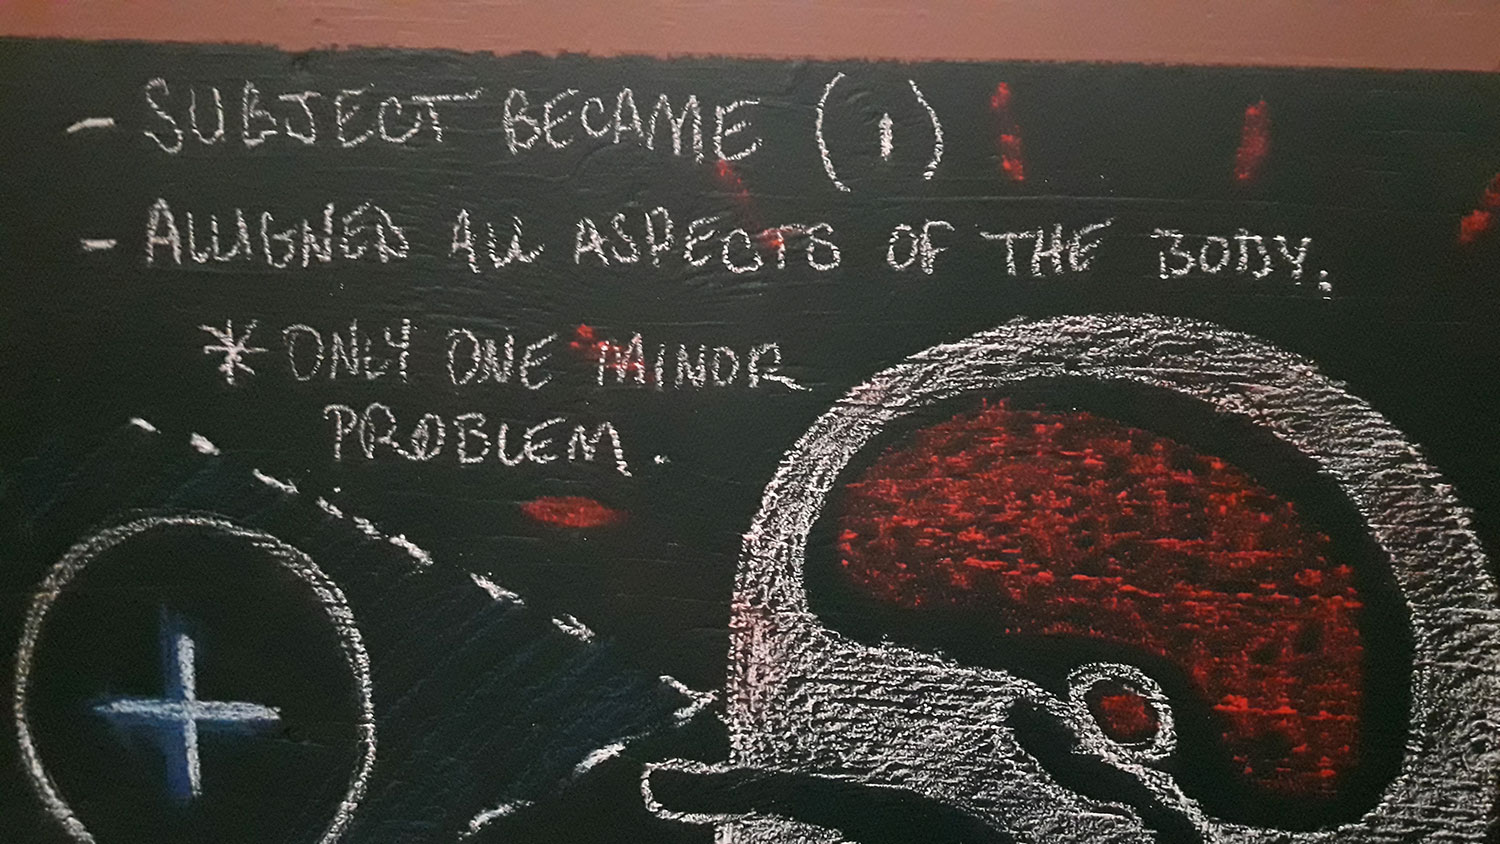 - SUBJECT BECAME (1)
- ALLIGNED ALL ASPECTS OF THE BODY.
* ONLY ONE MINOR
PROBLEM.